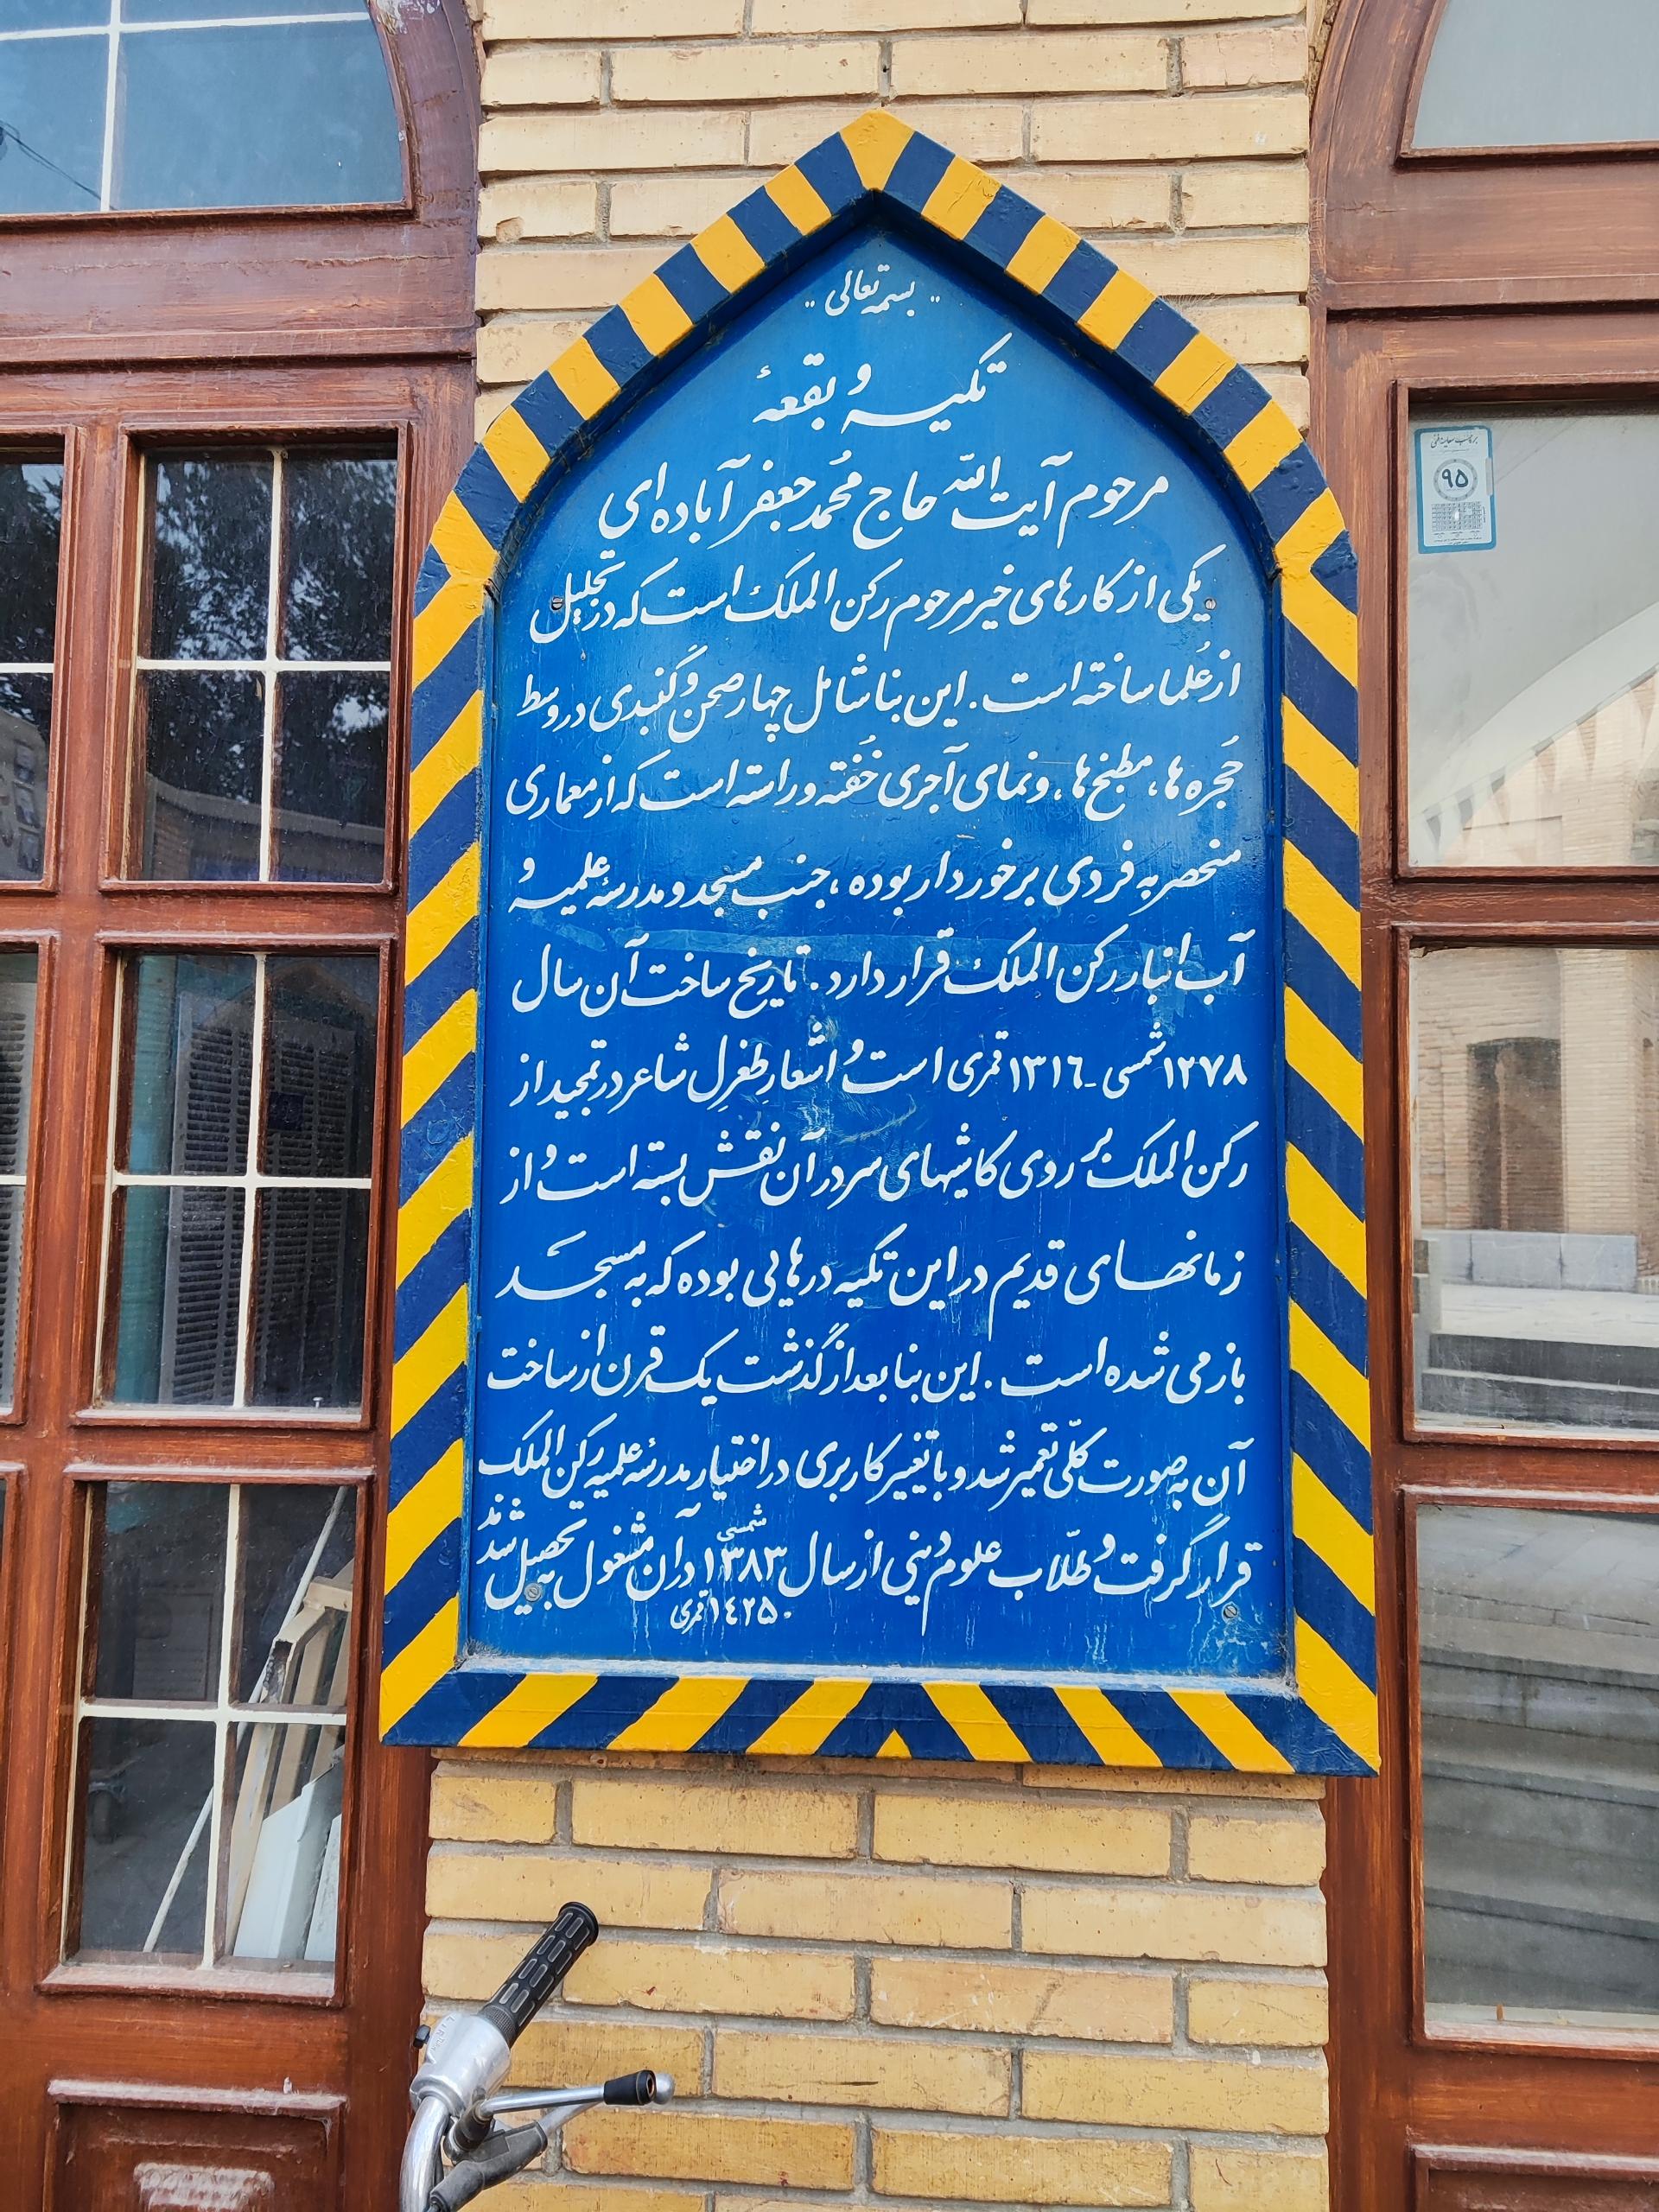 بسمه تعالی
تکیه و بقعهٔ
مرحوم آیت الله حاج مُحمد جعفر آباده ای
یکی از کارهای خیر مرحوم رکن الملک است که در تجلیل
از عُلما ساخته است. این بنا شامل چهار صحن و گنبدی در وسط
حُجره ها، مطبخ ها، و نمای آجری خُفته و راسته است که از معماری
منحصر به فردی برخوردار بوده، جنب مسجد و مدرسهٔ علمیه و
آب انبار رکن الملک قرار دارد. تاریخ ساخت آن سال
۱۲۷۸ شمسی - ۱۳۱٦ قمری است و اشعارِ طغرِلِ شاعر در تمجید از
رکن الملک بر روی کاشیهای سردر آن نقش بسته است و از
زمانهای قدیم در این تکیه درهایی بوده که به مسجد
باز می شده است. این بنا بعد از گذشت یک قرن از ساخت
آن به صورت کلّی تعمیر شد و با تغییر کاربری در اختیار مدرسهٔ علمیه رکن الملک
قرار گرفت و طلّاب علوم دینی از سال ۱۳۸۳ شمسی در آن مشغول به تحصیل شدند
۱٤۲۵ قمری
۹۵